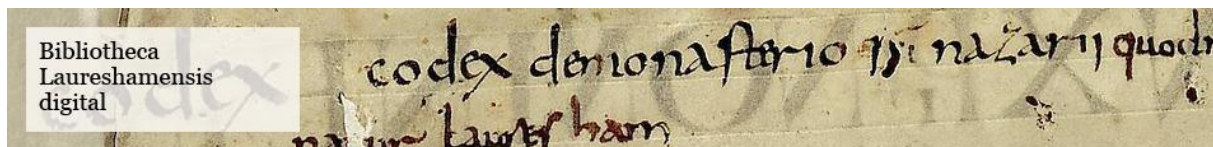 Bibliotheca
Laureshamensis
digital
codex demonasterio sci nazarii quod
lauresham